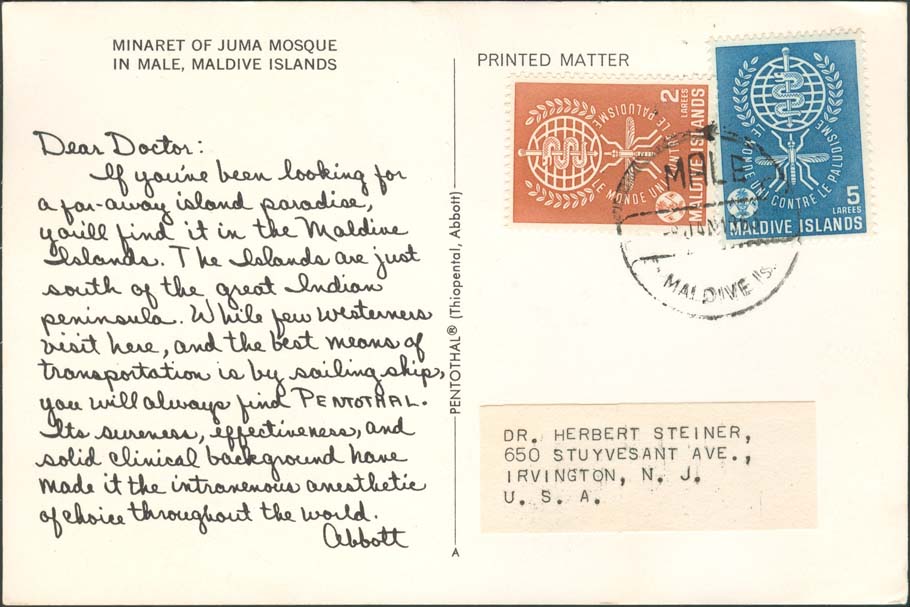 MINARET OF JUMA MOSQUE
IN MALE, MALDIVE ISLANDS
Dear Doctor:
If you've been looking for
a far-away island paradise,
you'll find it in the Maldive
Islands. The Islands are just
south of the great Indian
peninsula. While few westerners
visit here, and the best means of
transportation is by sailing ship,
you will always find PENTOTHAL.
Its sureness, effectiveness, and
solid clinical background have
made it the intravenous anesthetic
of choice throughout the world.
Abbott
PENTOTHAL® (Thiopental, Abbott)
A
PRINTED MATTER
2
LAREES
MALDIVE ISLANDS
LE MONDE UNI LE PALUDISME
LE MONDE UNI CONTRE LE PALUDISME
5
LAREES
MALDIVE ISLANDS
MALE
JAN
MALDIVE IS.
DR. HERBERT STEINER,
650 STUYVESANT AVE.,
IRVINGTON, N. J.
U. S. A.